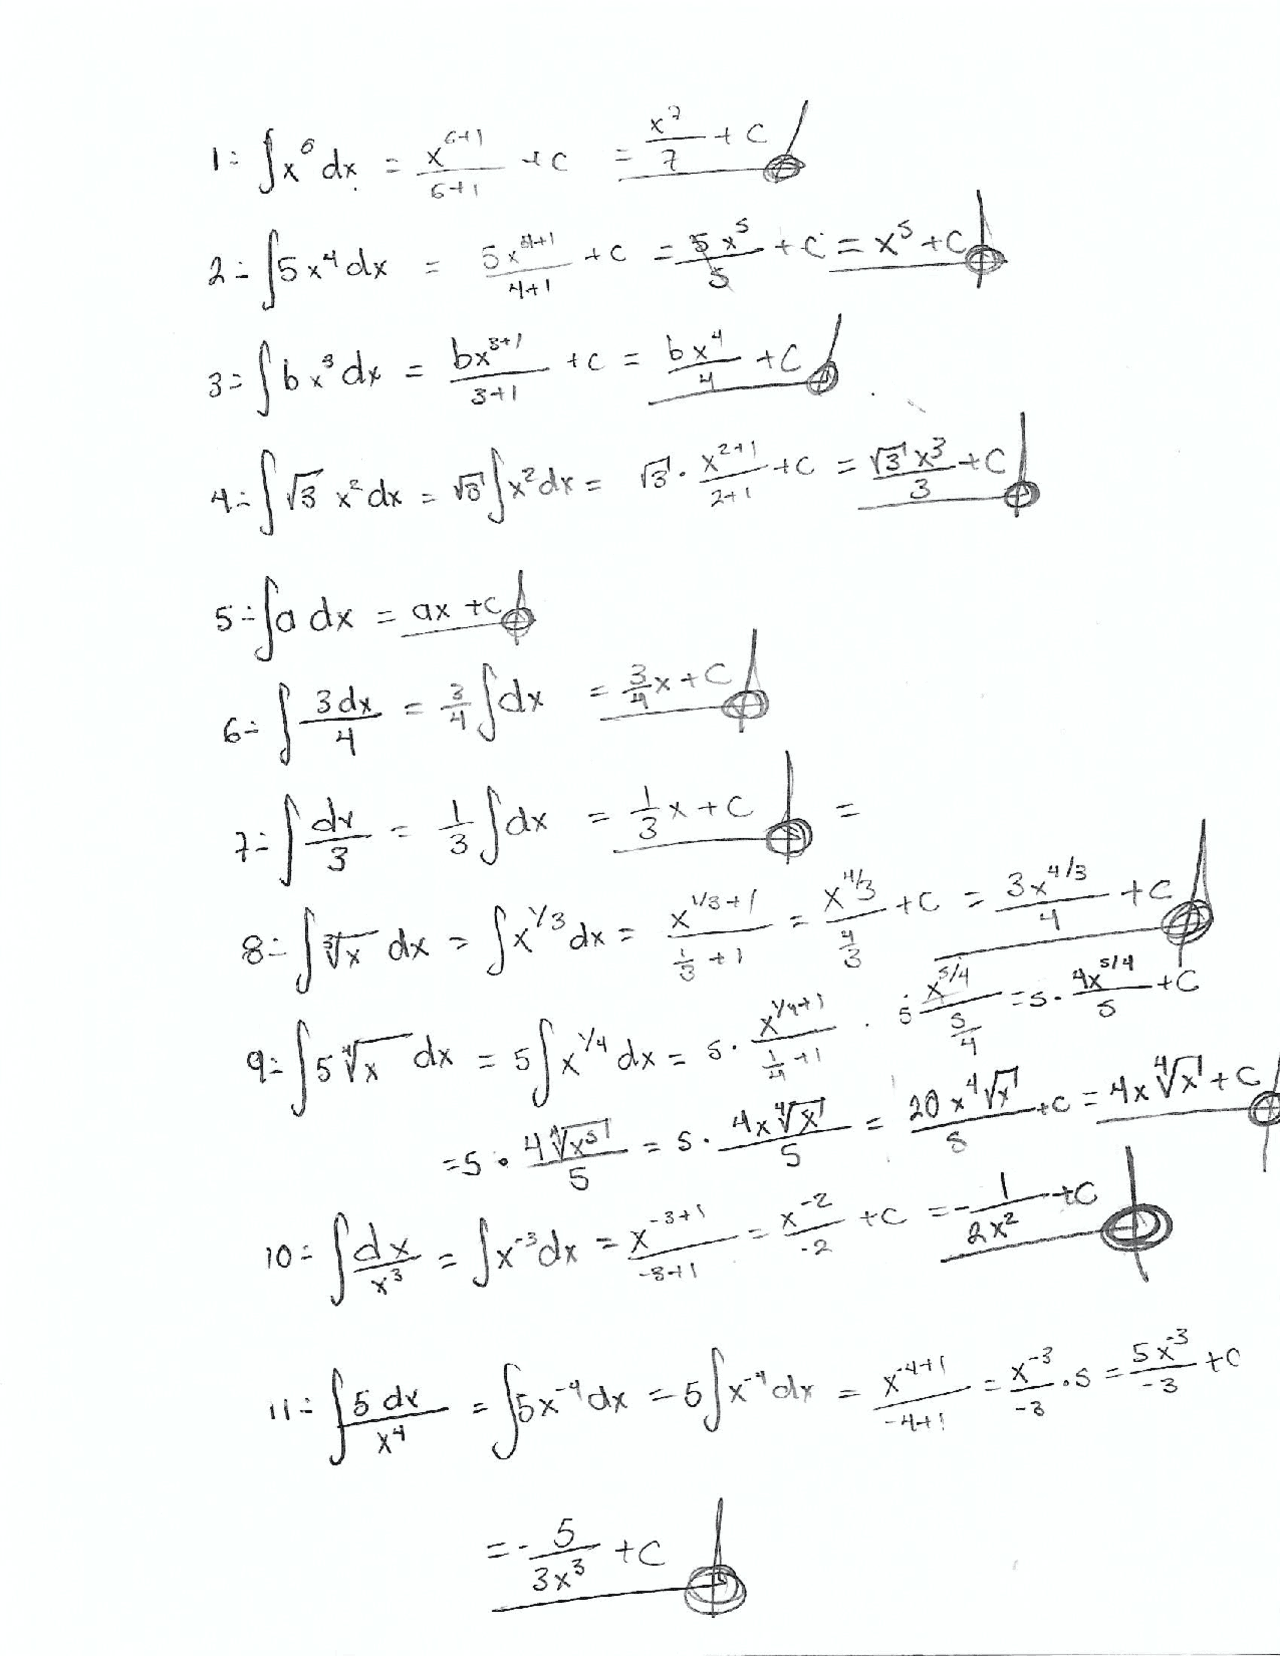 1÷ ∫x⁶ dx = x⁶⁺¹/6+1 + C = x⁷/7 + C
2÷ ∫5x⁴ dx = 5x⁴⁺¹/4+1 + C = 5x⁵/5 + C = x⁵ + C
3÷ ∫bx³ dx = bx³⁺¹/3+1 + C = bx⁴/4 + C
4÷ ∫√3 x² dx = √3 ∫x² dx = √3 · x²⁺¹/2+1 + C = √3 x³/3 + C
5÷ ∫a dx = ax + C
6÷ ∫3dx/4 = 3/4 ∫dx = 3/4 x + C
7÷ ∫dx/3 = 1/3 ∫dx = 1/3 x + C =
8÷ ∫∛x dx = ∫x^1/3 dx = x^1/3+1/1/3+1 = x^4/3/4/3 + C = 3x^4/3/4 + C
9÷ ∫5∜x dx = 5∫x^1/4 dx = 5 · x^1/4+1/1/4+1 · 5 x^5/4/5/4 = 5 · 4x^5/4/5 + C
= 5 · 4∜x⁵/5 = 5 · 4x∜x/5 = 20x∜x/5 + C = 4x∜x + C
10÷ ∫dx/x³ = ∫x⁻³ dx = x⁻³⁺¹/-3+1 = x⁻²/-2 + C = - 1/2x² + C
11÷ ∫5dx/x⁴ = ∫5x⁻⁴ dx = 5∫x⁻⁴ dx = x⁻⁴⁺¹/-4+1 = x⁻³/-3 · 5 = 5x⁻³/-3 + C
= - 5/3x³ + C